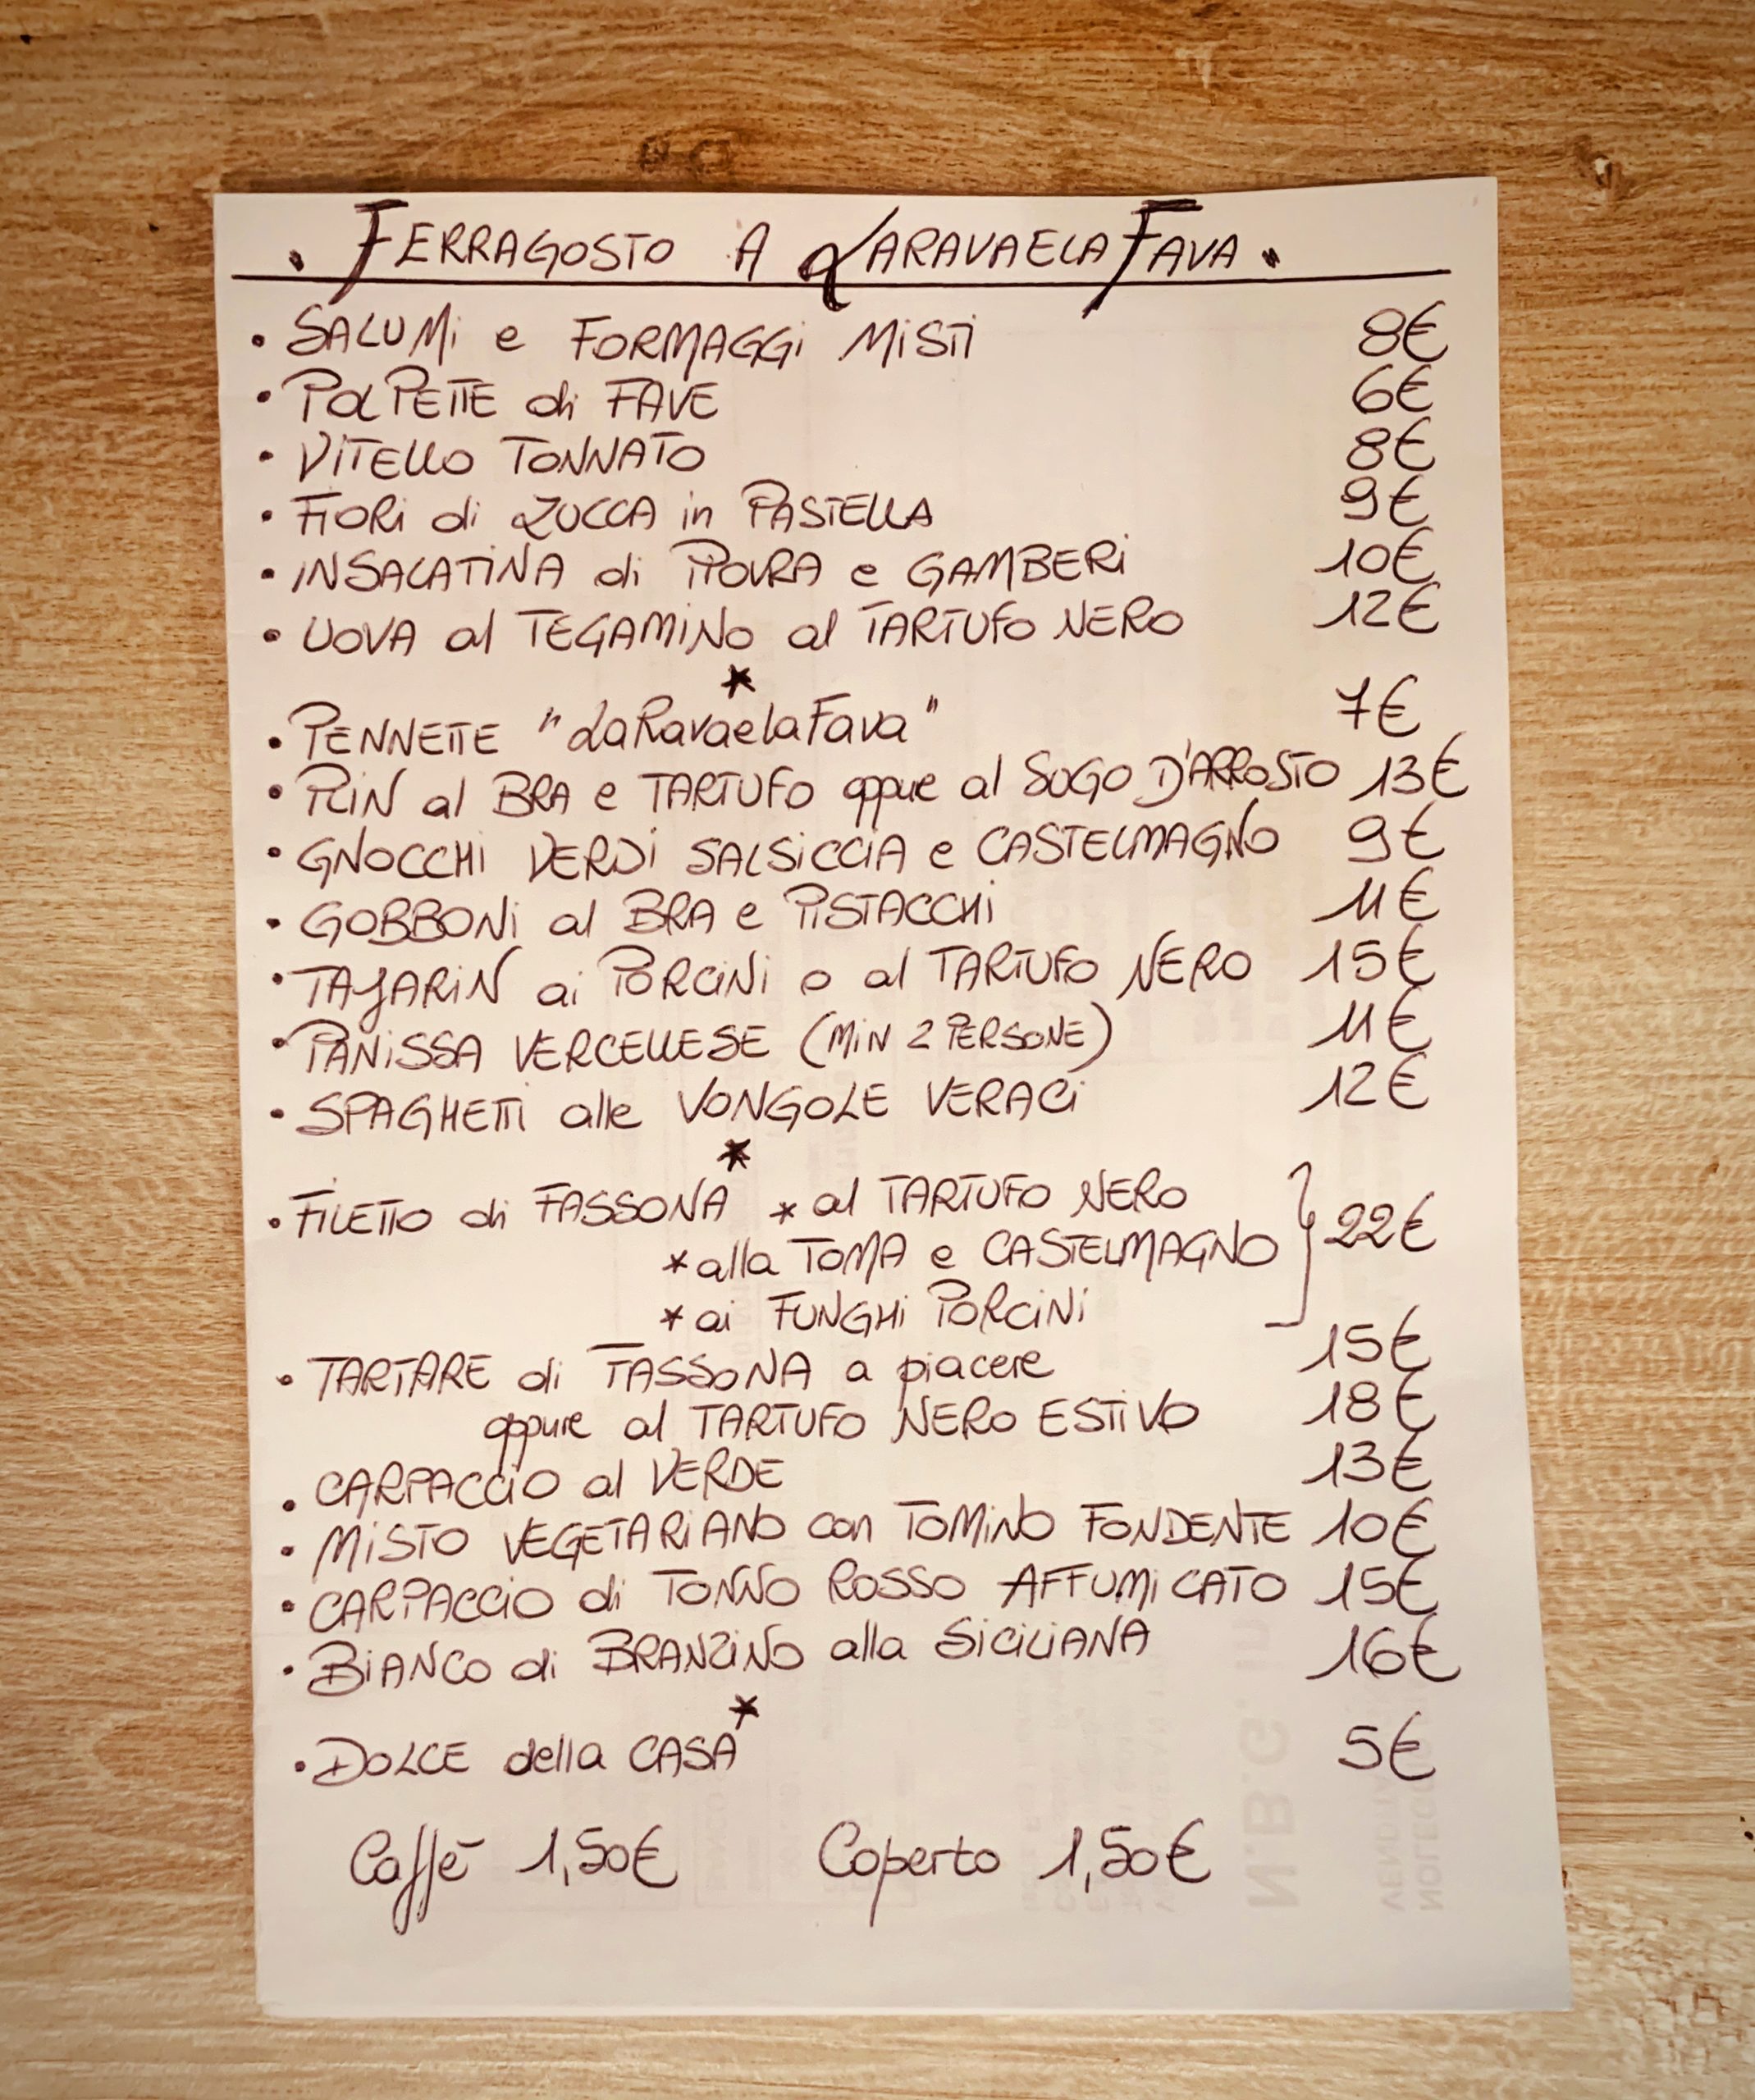 . FERRAGOSTO A LARAVAELAFAVA .
• SALUMI e FORMAGGI MISTI 8€
• POLPETTE di FAVE 6€
• VITELLO TONNATO 8€
• FIORI di ZUCCA in PASTELLA 9€
• INSALATINA di PIOVRA e GAMBERI 10€
• UOVA al TEGAMINO al TARTUFO NERO 12€
*
• PENNETTE "LaRavaelaFava" 7€
• PLIN al BRA e TARTUFO oppure al SUGO D'ARROSTO 13€
• GNOCCHI VERDI SALSICCIA e CASTELMAGNO 9€
• GOBBONI al BRA e PISTACCHI 11€
• TAJARIN ai PORCINI o al TARTUFO NERO 15€
• PANISSA VERCELLESE (MIN 2 PERSONE) 11€
• SPAGHETTI alle VONGOLE VERACI 12€
*
• FILETTO di FASSONA * al TARTUFO NERO
* alla TOMA e CASTELMAGNO } 22€
* ai FUNGHI PORCINI
• TARTARE di FASSONA a piacere 15€
oppure al TARTUFO NERO ESTIVO 18€
• CARPACCIO al VERDE 13€
• MISTO VEGETARIANO con TOMINO FONDENTE 10€
• CARPACCIO di TONNO ROSSO AFFUMICATO 15€
• BIANCO di BRANZINO alla SICILIANA 16€
*
• DOLCE della CASA 5€
Caffè 1,50€ Coperto 1,50€
N.B.G.